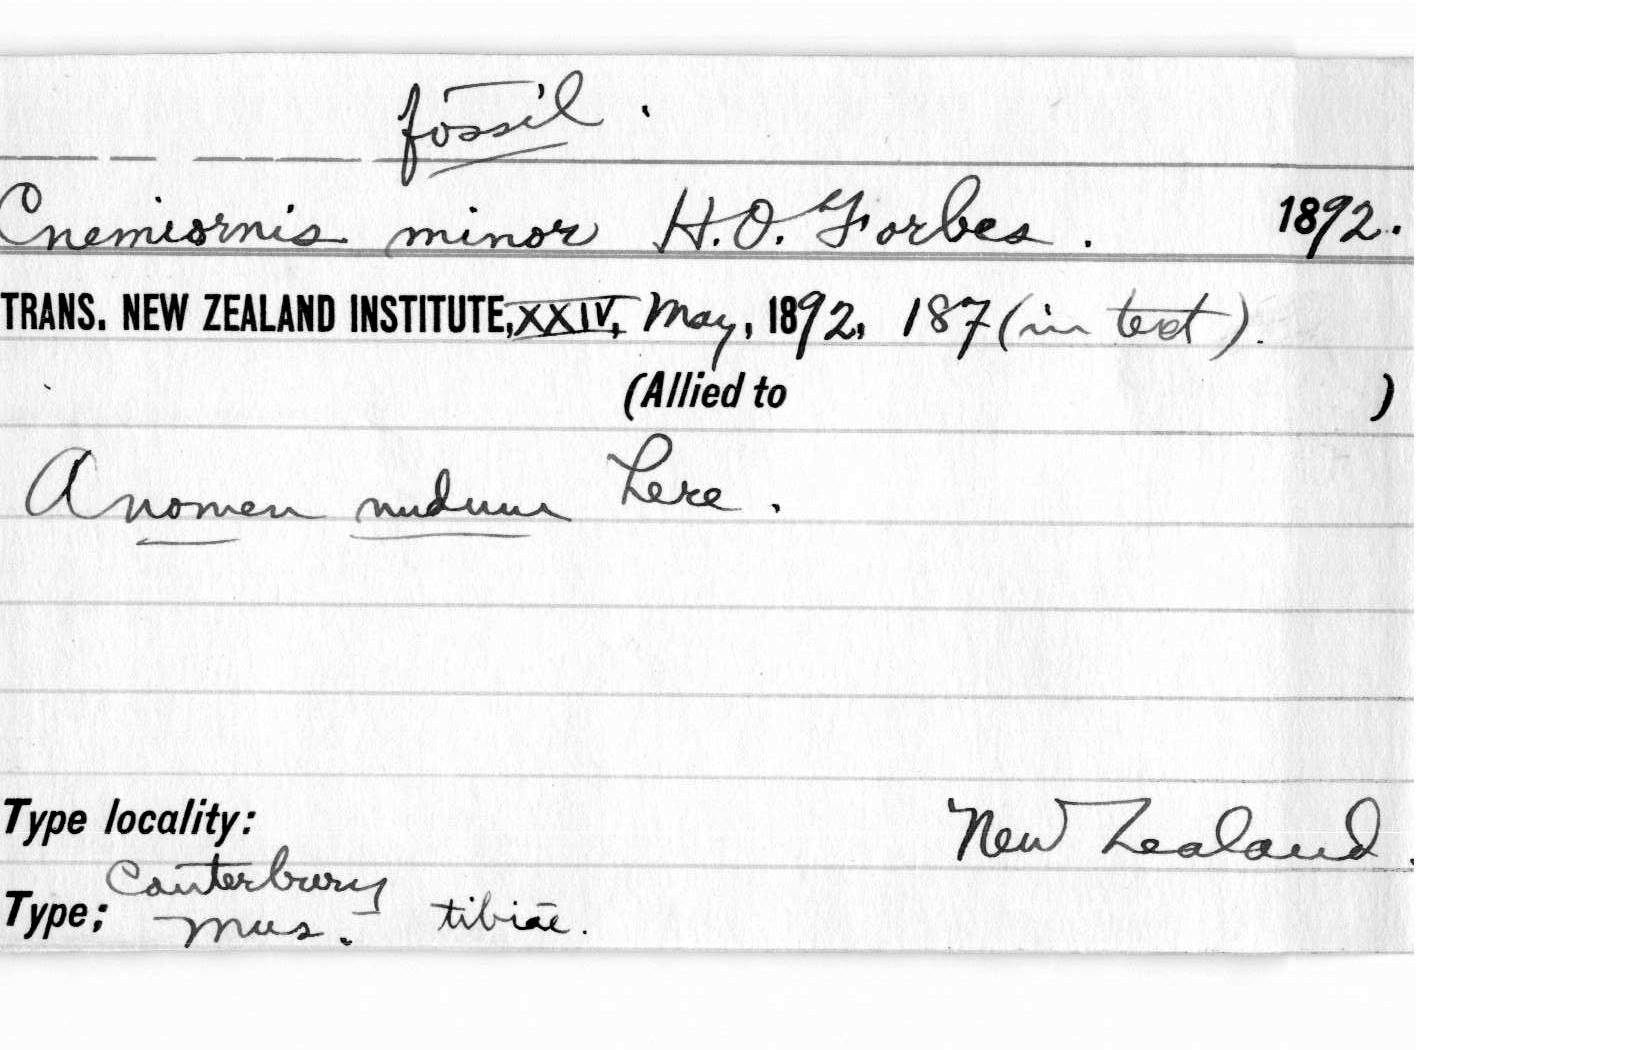 fossil.
Cnemiornis minor H.O. Forbes. 1892.
TRANS. NEW ZEALAND INSTITUTE, XXIV, May, 1892, 187 (in text).
(Allied to )
A nomen nudum here.
Type locality: New Zealand.
Type; Canterbury Mus. tibiae.